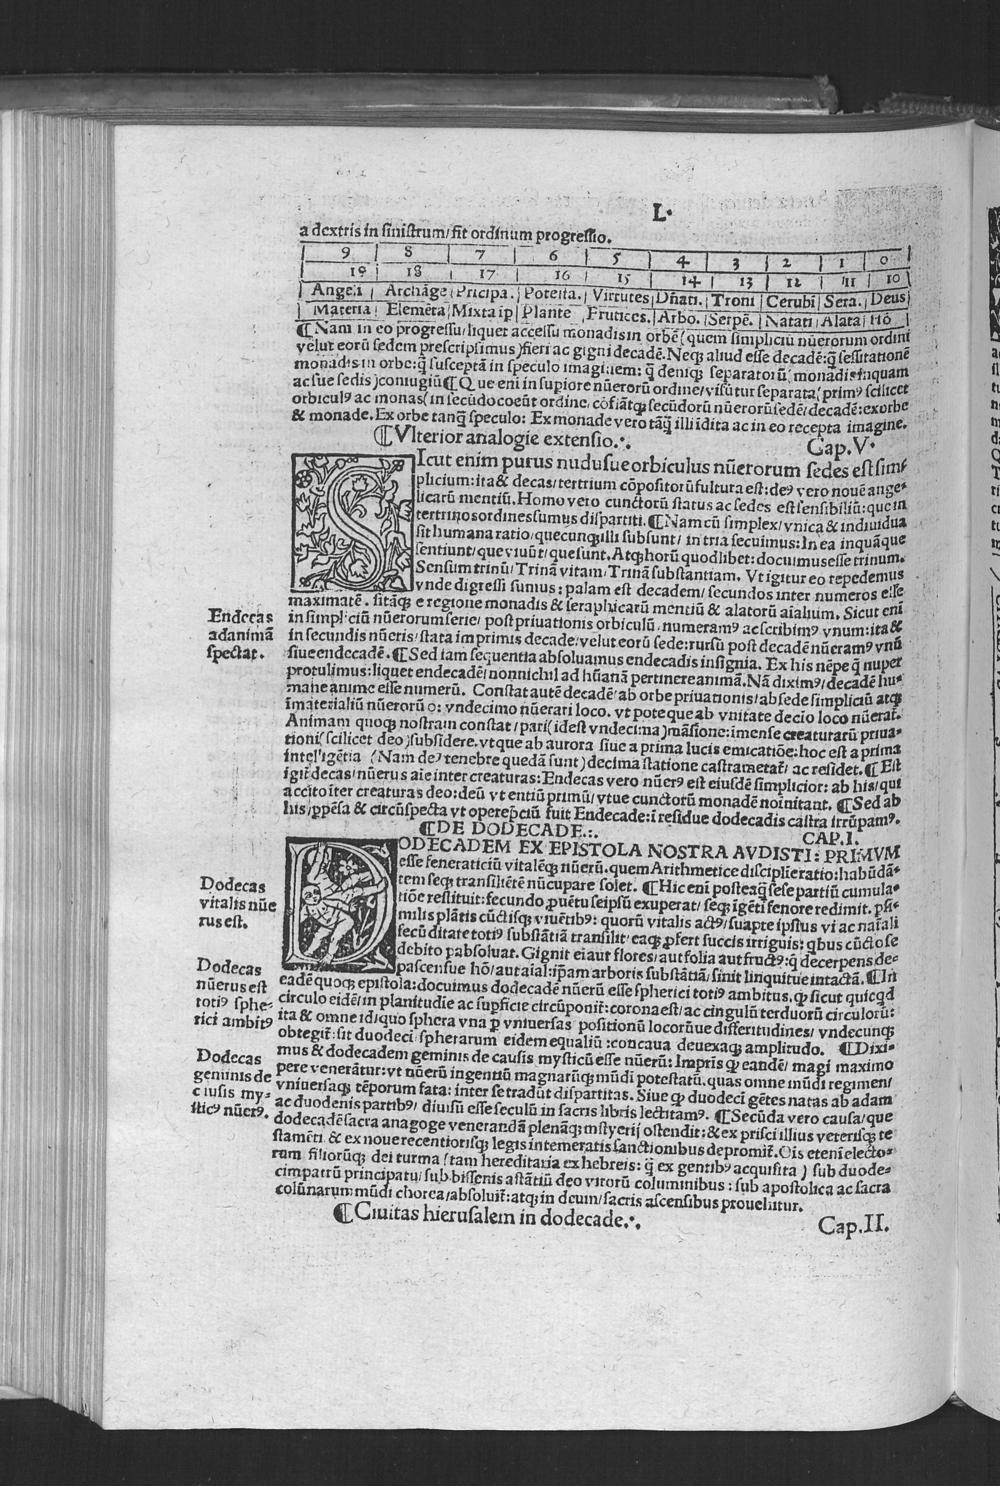 L.
a dextris in sinistrum/ fit ordinum progressio.
9 | 8 | 7 | 6 | 5 | 4 | 3 | 2 | 1 | 0
19 | 18 | 17 | 16 | 15 | 14 | 13 | 12 | 11 | 10
Angeli | Archāge | Pricipa. | Potesta. | Virtutes | Dn̄ati. | Troni | Cerubi | Sera. | Deus
Materia | Elemēta | Mixta ip | Plante | Frutices. | Arbo. | Serpē. | Natati | Alata | Hō
¶ Nam in eo progressu/ liquet accessu monadis in orbē ( quem simpliciū nūerorum ordini
velut eorū sedem prescripsimus ) fieri ac gigni decadē. Neq; aliud esse decadē: q̄ sessitationē
monadis in orbe: q̄ susceptā in speculo imaginem: q̄ deniq; separatorū ( monadis inquam
ac sue sedis ) coniugiū ¶ Que eni in supiore nūerorū ordine/ visūtur separata ( primꝰ scilicet
orbiculꝰ ac monas ( in secūdo coeūt ordine, cōfiātq; secūdorū nūerorū sedē/ decadē: ex orbe
& monade. Ex orbe tanq̄ speculo: Ex monade vero tāq̄ illi idita ac in eo recepta imagine.
¶ Vlterior analogie extensio.∴ Cap.V.
SIcut enim purus nudusue orbiculus nūerorum sedes est sim
plicium: ita & decas/ tertrium cōpositorū fultura est: deꝰ vero nouē ange-
licarū mentiū. Homo vero cunctorū status ac sedes est sensibiliū: que in
ter trinos ordines sumus dispartiti. ¶ Nam cū simplex/ vnica & indiuidua
sit humana ratio/ quecunq; illi subsunt/ in tria secuimus: In ea inquāque
sentiunt/ que viuūt/ que sunt. Atq; horū quodlibet: docuimus esse trinum.
Sensum trinū/ Trinā vitam/ Trinā substantiam. Vt igitur eo repedemus
vnde digressi sumus: palam est decadem/ secundos inter numeros esse
maximatē. sitāq; e regione monadis & seraphicarū mentiū & alatorū aīalium. Sicut eni
in simpliciū nūerorum serie/ post priuationis orbiculū, numeramꝰ ac scribimꝰ vnum: ita &
in secundis nūeris/ stata imprimis decade/ velut eorū sede: rursū post decadē nūeramꝰ vnū
siue endecadē. ¶ Sed iam sequentia absoluamus endecadis insignia. Ex his nēpe q̄ nuper
protulimus: liquet endecadē/ nonnichil ad hūanā pertinere animā. Nā diximꝰ/ decadē hu-
mane anime esse numerū. Constat autē decadē/ ab orbe priuationis/ ab sede simpliciū atq;
īmaterialiū nūerorū o: vndecimo nūerari loco. vt pote que ab vnitate decio loco nūerat̄.
Animam quoq; nostram constat/ pari ( idest vndecima ) māsione: īmense creaturarū priua-
tioni ( scilicet deo ) subsidere. vtque ab aurora siue a prima lucis emicatiōe: hoc est a prima
intelligētia ( Nam deꝰ tenebre quedā sunt ) decima statione castrametat̄/ ac residet. ¶ Est
igit̄ decas/ nūerus aīe inter creaturas: Endecas vero nūerꝰ est eiusdē simplicior: ab his/ qui
accito īter creaturas deo: deū vt entiū primū/ vtue cunctorū monadē noīnitant. ¶ Sed ab
his/ ꝑpēsa & circūspecta vt opereprciū fuit Endecade: ī residue dodecadis castra irrūpamꝰ.
¶ DE DODECADE.∴ CAP.I.
DODECADEM EX EPISTOLA NOSTRA AVDISTI: PRIMVM
esse feneraticiū vitalēq; nūerū. quem Arithmetice disciplie ratio: habūdā-
tem seq; transiliētē nūcupare solet. ¶ Hic eni posteaq̄ sese partiū cumula-
tiōe restituit: fecundo ꝓuētu seipsū exuperat/ seq; īgēti fenore redimit. ꝑsi-
milis plātis cūctisq; viuētibꝰ: quorū vitalis actꝰ/ suapte ipsius vi ac naťali
fecūditate totiꝰ substātiā transilit/ eaq; ꝓfert succis irriguis: qbus cūcto se
debito ꝑabsoluat. Gignit ei aut flores/ aut folia aut fructꝰ: q̄ decerpens de-
pascensue hō/ aut aīal: ipam arboris substātiā/ sinit linquitue intactā. ¶ In
eadē quoq; epistola: docuimus dodecadē nūerū esse spherici totiꝰ ambitus. ꝙ sicut quicqd
circulo eidē/ in planitudie ac suꝑficie circūponit̄: corona est/ ac cingulū terduorū circulorū:
ita & omne id/ quo sphera vna ꝑ vniuersas positionū locorūue differitudines/ vndecunq;
obtegit̄: sit duodeci/ spherarum eidem equaliū: concaua deuexaq; amplitudo. ¶ Dixi-
mus & dodecadem geminis de causis mysticū esse nūerū: Impris ꝙ eandē/ magi maximo
pere venerātur: vt nūerū ingentiū magnarūq; mūdi potestatū. quas omne mūdi regimen/
vniuersaq; tēporum fata: inter se tradūt dispartitas. Siue ꝙ duodeci gētes natas ab adam
ac duodenis partibꝰ/ diuisū esse seculū in sacris libris lectitamꝰ. ¶ Secūda vero causa/ que
dodecadē sacra anagoge venerandā plenāq; mstyerij ostendit: & ex prisci illius veterisq; te
stamēti & ex noue recentiorisq; legis intemeratis sanctionibus depromit̄. Ois eteni electo-
rum filiorūq; dei turma ( tam hereditaria ex hebreis: q̄ ex gentibꝰ acquisita ) sub duode-
cim patrū principatu/ sub bissenis astātiū deo virorū columinibus: sub apostolica ac sacra
colūnarum mūdi chorea/ absoluit̄: atq; in deum/ sacris ascensibus prouehitur.
¶ Ciuitas hierusalem in dodecade.∴ Cap.II.
Endecas
ad animā
spectat.
Dodecas
vitalis nūe
rus est.
Dodecas
nūerus est
totiꝰ sphe-
rici ambitꝰ
Dodecas
geminis de
causis my-
sticꝰ nūerꝰ.